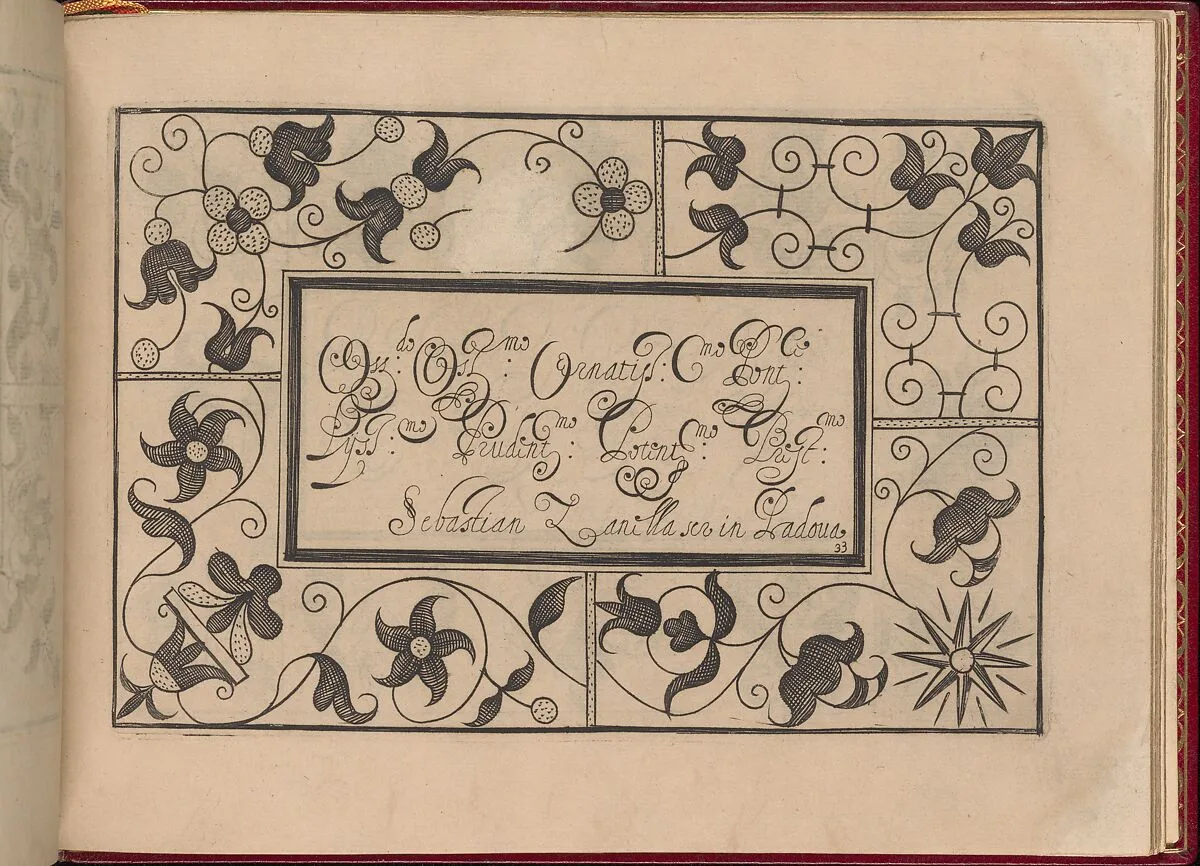 Oss:do Ossſ:mo Ornatiſſ:mo Pont:ce
Lyſſ:mo Prudent:mo Potent:mo Preſt:mo
Sebastian Zanilla ser in Padoua
33